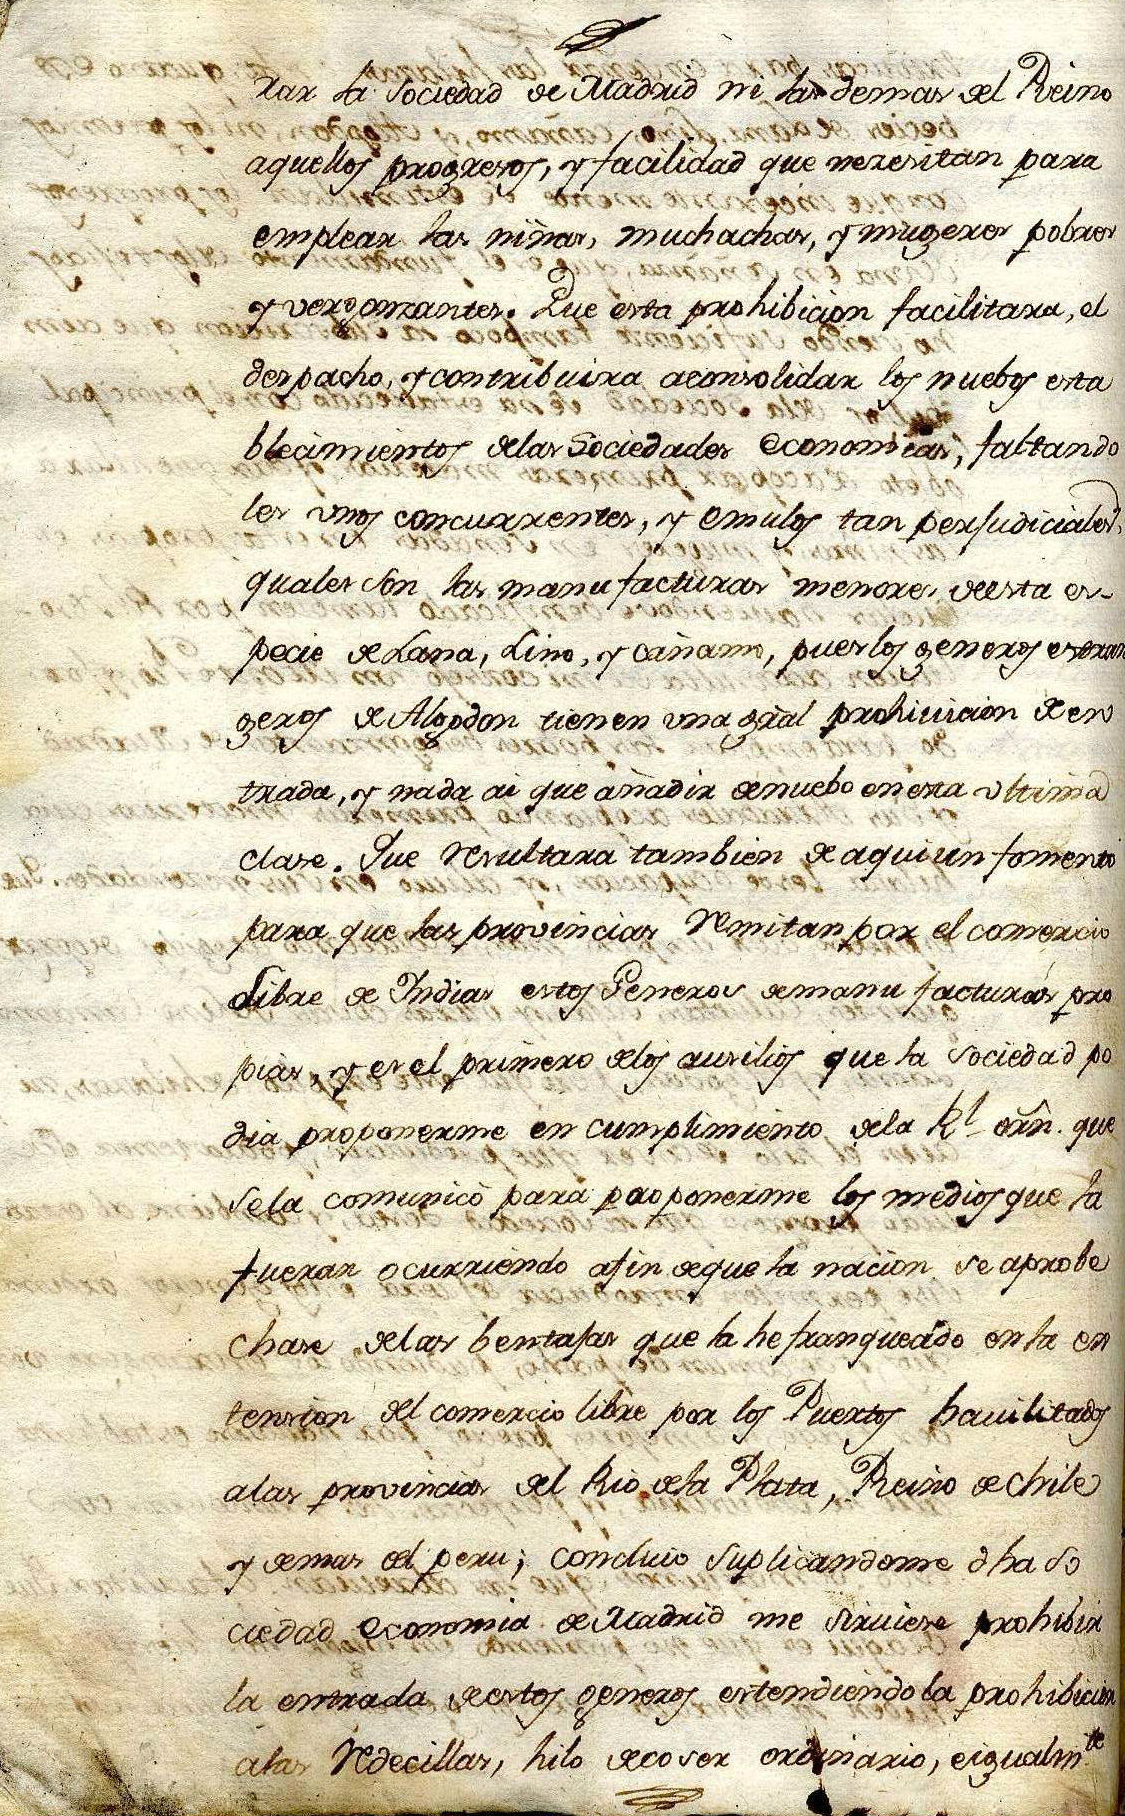 rar la Sociedad de Madrid ni las demas del Reino
aquellos progresos, y facilidad que nezesitan para
emplear las niñas, muchachas, y mugeres pobres
y vergonzantes. Que esta prohibicion facilitara, el
despacho, y contribuira aconsolidar los nuebos esta
blecimientos delas Sociedades economicas, faltando
les unos concurrentes, y emulos tan perjudiciales,
quales son las manufacturas menores deesta es-
pecie de Lana, Lino, y cañamo, pues los generos estran
geros de Algodon tienen una gral prohivicion de en
trada, y nada ai que añadir denuebo enesta ultima
clase. Que resultara tambien de aqui un fomento
para que las provincias remitan por el comercio
Libre de Indias estos Generos demanufacturas pro
pias, y es el primero delos ausilios que la Sociedad po
dia proponerme en cumplimiento dela Rl orñ. que
sela comunicó para proponerme los medios que la
fueran ocurriendo afin deque la nacion se aprobe
chase delas bentajas que la he franqueado en la es
tension del comercio libre por los Puertos havilitados
alas provincias del Rio dela Plata, Reino de Chile
y demas del peru; concluio suplicandome dha So
ciedad economia de Madrid me sirviese prohibir
la entrada deestos generos estendiendola prohibicion
alas Redecillas, hilo decoser ordinario, eigualmte